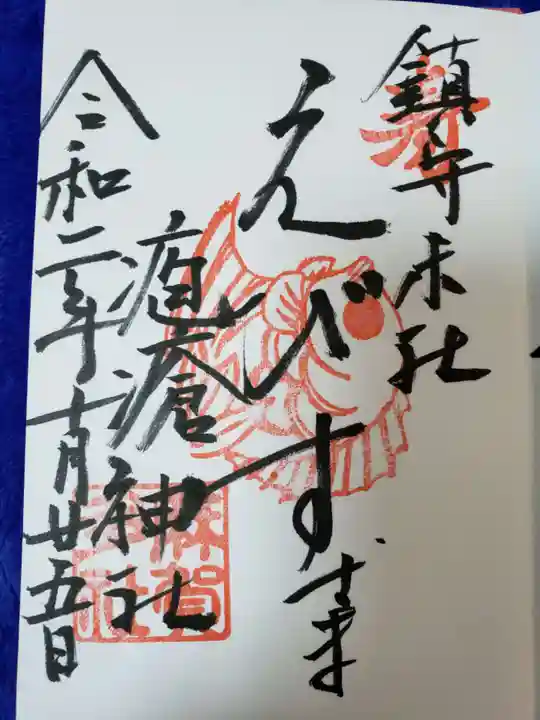 鎮守末社
えびす
疱瘡神社
令和二年十月廿五日